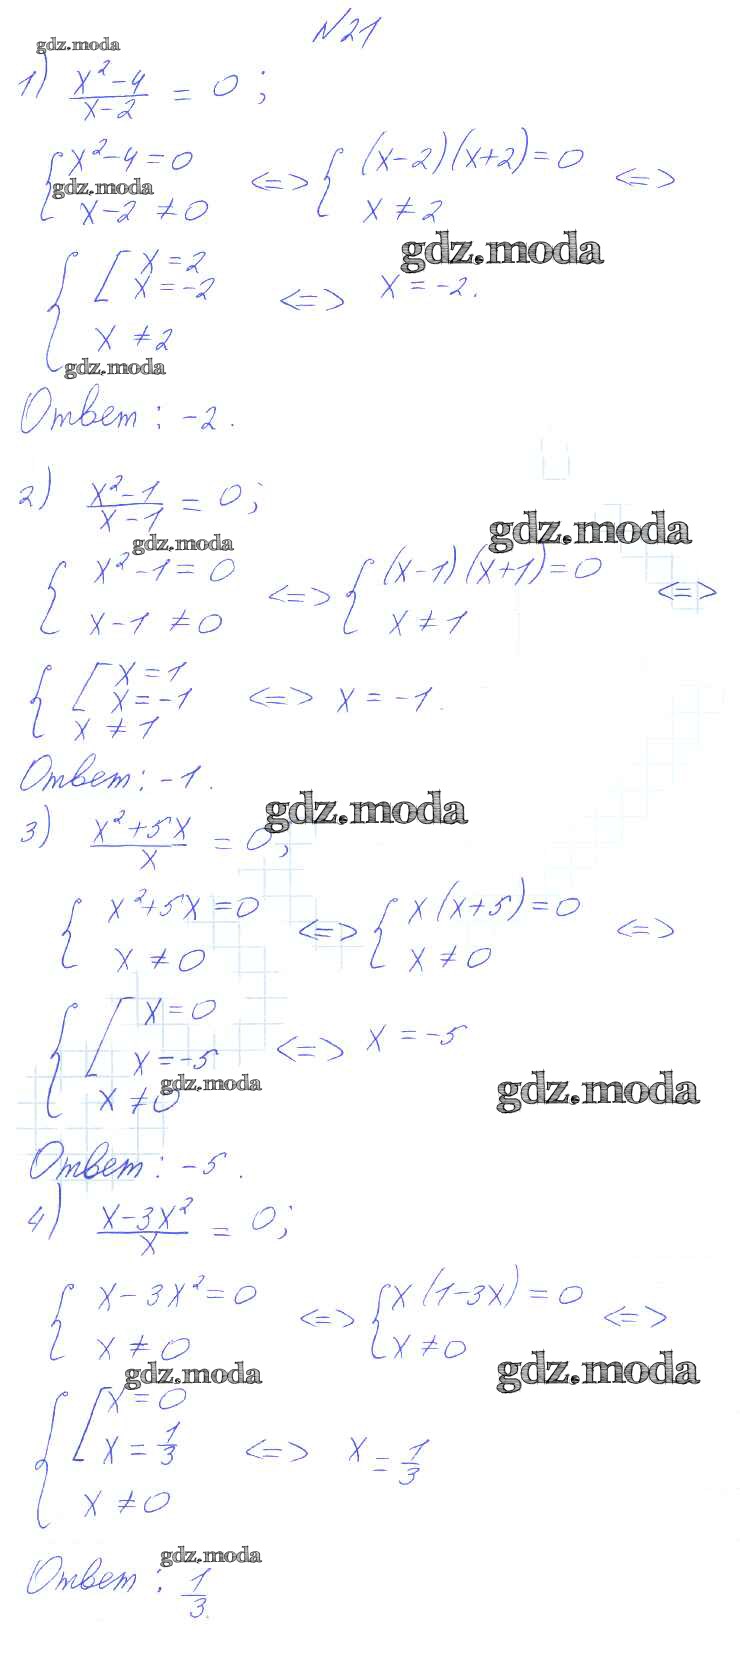 N21
gdz.moda
1) (x²-4)/(x-2) = 0;
{ x²-4=0 <=> { (x-2)(x+2)=0 <=>
gdz.moda
x-2 ≠0 x≠2
gdz.moda
{ [ x=2
x=-2 <=> x=-2.
x ≠2
gdz.moda
Ответ: -2.
2) (x²-1)/(x-1) = 0;
gdz.moda
gdz.moda
{ x²-1=0 <=> { (x-1)(x+1)=0 <=>
x-1 ≠0 x≠1
{ [ x=1
x=-1 <=> x=-1.
x ≠1
Ответ: -1.
gdz.moda
3) (x²+5x)/x = 0;
{ x²+5x=0 <=> { x(x+5)=0 <=>
x≠0 x≠0
{ [ x=0
x=-5 <=> x=-5
gdz.moda
gdz.moda
x≠0
Ответ: -5.
4) (x-3x²)/x = 0;
{ x-3x²=0 <=> { x(1-3x)=0 <=>
x≠0 x≠0
gdz.moda
gdz.moda
{ [ x=0
x=1/3 <=> x=1/3
x≠0
gdz.moda
Ответ: 1/3.